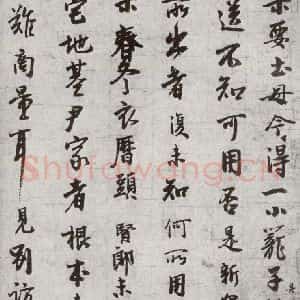 要土母今得一小籠子
送不知可用否是新
所出者復未知何所用
春冬衣曆頭賢郎未
宅地基尹家者根本
難商量耳見別訪
Shufawang.cn